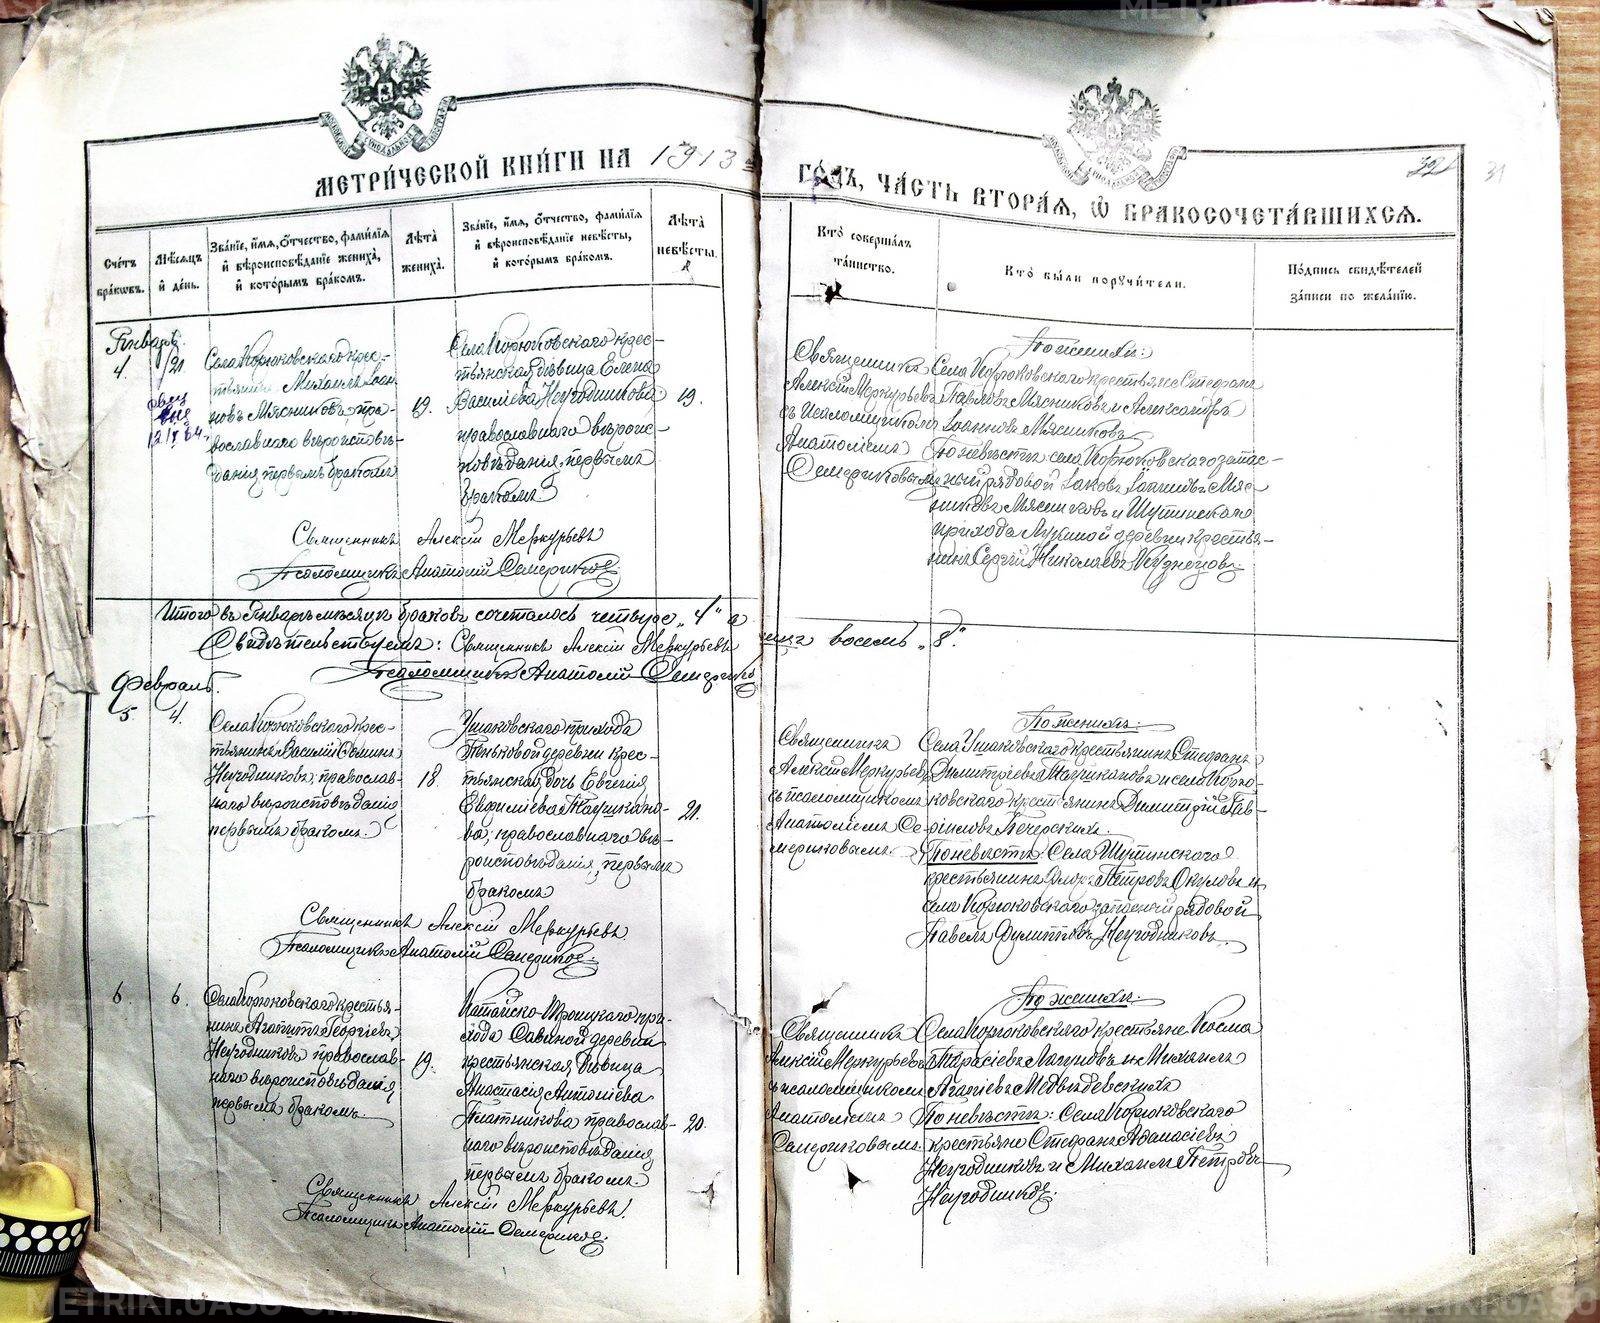 METRIKI.GASU-URAL.RU
МЕТРИ́ЧЕСКОЙ КНИ́ГИ НА 1913 ГО́ДЪ, ЧА́СТЬ ВТОРА́Я, Ѡ БРАКОСОЧЕТА́ВШИХСЯ.
321 31
Сче́тъ бра́кѡвъ.
Мѣ́сяцъ и де́нь.
Зва́нїе, и́мя, ѻ́тчество, фами́лїя и вѣроисповѣ́данїе жениха́, и кото́рымъ бра́комъ.
Лѣ́та жениха́.
Зва́нїе, и́мя, ѻ́тчество, фами́лїя и вѣроисповѣ́данїе невѣ́сты, и кото́рымъ бра́комъ.
Лѣ́та невѣ́сты.
Кто̀ соверша́лъ та́инство.
Кто̀ бы́ли поручи́тели.
По́дпись свидѣ́телей за́писи по жела́нїю.
Январь.
4. 21
12/I 64.
Села Корюковскаго крес-
тьянинъ Михаилъ Іоан-
новъ Мясниковъ, пра-
вославнаго вѣроисповѣ-
данія, первымъ бракомъ
19.
Села Корюковскаго крес-
тьянская дѣвица Елена
Василіева Неугодникова
православнаго вѣроис-
повѣданія, первымъ
бракомъ
19.
Священникъ
Алексій Меркурьевъ
съ псаломщикомъ
Анатоліемъ
Семериковымъ
По женихѣ:
Села Корюковскаго крестьяне Стефанъ
Павловъ Мясниковъ и Александръ
Іоанновъ Мясниковъ
По невѣстѣ: села Корюковскаго запас-
ный рядовой Іаковъ Мяс-
никовъ и Шутинскаго
прихода Лукиной деревни крестья-
нинъ Сергѣй Николаевъ Кузнецовъ.
Священникъ Алексій Меркурьевъ
Псаломщикъ Анатолій Семериковъ
Итого въ Январѣ мѣсяцѣ браковъ сочеталось четыре „4" а лицъ восемь „8".
Свидѣтельствуемъ: Священникъ Алексій Меркурьевъ
Псаломщикъ Анатолій Семериковъ
Февраль.
5. 4.
Села Корюковскаго крес-
тьянинъ Василій
Неугодниковъ, православ-
наго вѣроисповѣданія
первымъ бракомъ.
18.
Ушаковскаго прихода
Пеньковой деревни крес-
тьянская дочь Евгенія
Евфиміева Таушкано-
ва, православнаго вѣ-
роисповѣданія, первымъ
бракомъ
21.
Священникъ
Алексій Меркурьевъ
съ псаломщикомъ
Анатоліемъ Се-
мериковымъ.
По женихѣ:
Села Ушаковскаго крестьянинъ Стефанъ
Димитріевъ Таушкановъ и села Корю-
ковскаго крестьянинъ Димитрій Гав-
ріиловъ Печерскихъ.
По невѣстѣ: Села Шутинскаго
крестьянинъ Флоръ Петровъ Окуловъ и
села Корюковскаго запасный рядовой
Павелъ Неугодниковъ.
Священникъ Алексій Меркурьевъ
Псаломщикъ Анатолій Семериковъ.
6. 6.
Села Корюковскаго крестья-
нинъ Агапитъ Георгіевъ
Неугодниковъ православ-
наго вѣроисповѣданія,
первымъ бракомъ.
19.
Катайско-Троицкаго при-
хода Савиной деревни
крестьянская дѣвица
Анастасія Антоніева
Плотникова православ-
наго вѣроисповѣданія,
первымъ бракомъ.
20.
Священникъ
Алексій Меркурьевъ
съ псаломщикомъ
Анатоліемъ
Семериковымъ.
По женихѣ:
Села Корюковскаго крестьяне Косма
Тарасіевъ Лагуновъ и Михаилъ
Агапіевъ Медвѣдевскихъ
По невѣстѣ: Села Корюковскаго
крестьяне Стефанъ Афанасіевъ
Неугодниковъ и Михаилъ Петровъ
Неугодниковъ.
Священникъ Алексій Меркурьевъ.
Псаломщикъ Анатолій Семериковъ.
METRIKI.GASU-URAL.RU
METRIKI.GASU